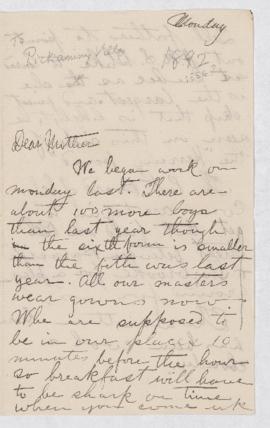 Monday
To
Pickaninnyville
1892
Dear Mother
We began work on
monday last. There are
about 100 more boys
than last year though
the sixth form is smaller
than the fifth was last
year. All our masters
wear gowns now.
We are supposed to
be in our places 10
minutes before the hour
so breakfast will have
to be sharp on time
when you come up